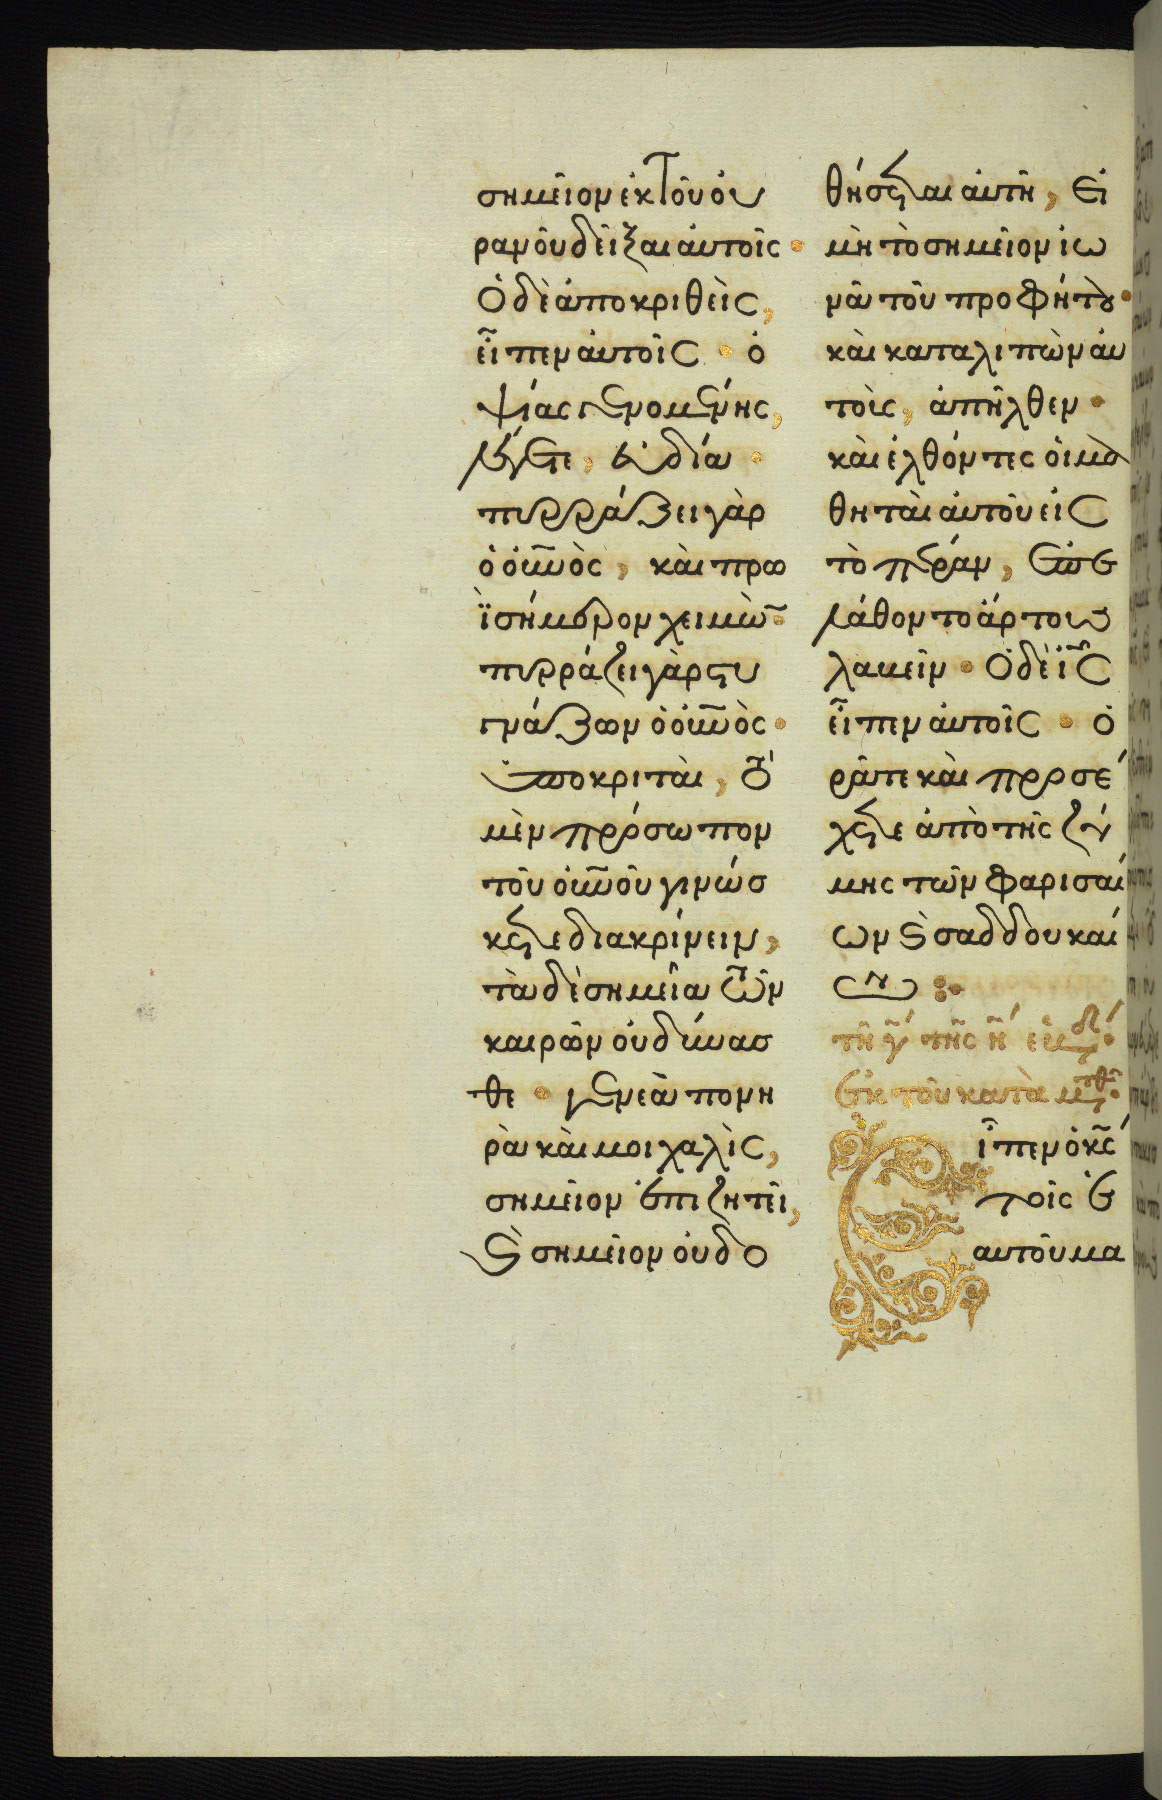 σημεῖον ἐκ τοῦ οὐ
ρανοῦ δεῖξαι αὐτοῖς ·
Ὁ δὲ ἀποκριθεὶς,
εἶπεν αὐτοῖς · ὀ
ψίας γενομένης,
λέγετε, εὐδία ·
πυρράζει γὰρ
ὁ οὐνὸς, καὶ πρω
ῒ σήμερον χειμὼ ·
πυρράζει γὰρ στυ
γνάζων ὁ οὐνὸς ·
ὑποκριταὶ, τὸ
μὲν πρόσωπον
τοῦ οὐνοῦ γινώσ
κετε διακρίνειν,
τὰ δὲ σημεῖα τῶν
καιρῶν οὐ δύνασ
θε · γενεὰ πονη
ρὰ καὶ μοιχαλὶς,
σημεῖον ἐπιζητεῖ,
ϗ σημεῖον οὐ δο
θήσεται αὐτῆ, εἰ
μὴ τὸ σημεῖον ἰω
νᾶ τοῦ προφήτου ·
καὶ καταλιπὼν αὐ
τοὺς, ἀπῆλθεν ·
καὶ ἐλθόντες οἱ μα
θηταὶ αὐτοῦ εἰς
τὸ πέραν, ἐπε
λάθοντο ἄρτους
λαβεῖν · Ὁ δὲ ἰς
εἶπεν αὐτοῖς · ὁ
ρᾶτε καὶ προσέ
χετε ἀπὸ τῆς ζύ
μης τῶν φαρισαί
ων ϗ σαδδουκαί
ων :·
τῆ γ τῆς η ἑβδ ·
ἐκ τοῦ κατὰ ματθ ·
Εἶπεν ὁ κς
τοῖς ἑ
αυτοῦ μα